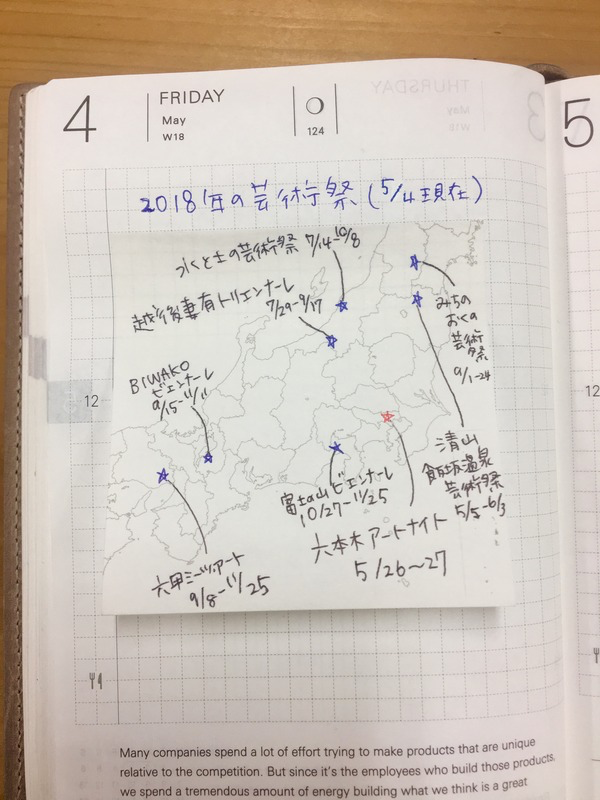 4
FRIDAY
May
W18
124
THURSDAY
May
W18
3
5
2018年の芸術祭(5/4現在)
水と土の芸術祭 7/14-10/8
越後妻有トリエンナーレ
7/29-9/17
みちの
おくの
芸術
祭
9/1-24
BIWAKO
ビエンナーレ
9/15-11/11
12
12
清山
飯坂温泉
芸術祭
5/5-6/3
富士の山ビエンナーレ
10/27-11/25
六本木アートナイト
5/26~27
六甲ミーツ・アート
9/8-11/25
Many companies spend a lot of effort trying to make products that are unique
relative to the competition. But since it's the employees who build those products,
we spend a tremendous amount of energy building what we think is a great